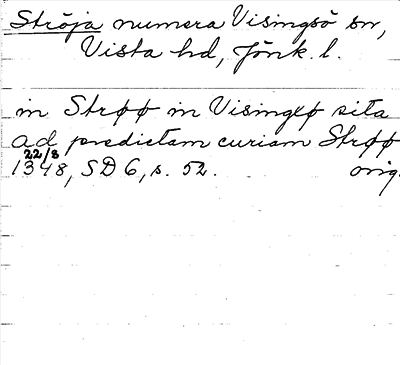 Ströja numera Visingsö sn,
Vista hd, Jönk. l.
in Strøø in Visingxø sita
ad predictam curiam Strøø
22/8
1348, SD 6, s. 52. orig.